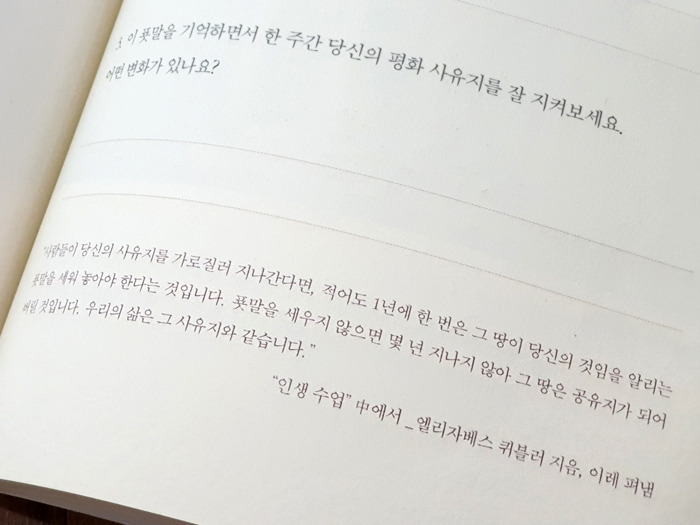 3. 이 푯말을 기억하면서 한 주간 당신의 평화 사유지를 잘 지켜보세요.
어떤 변화가 있나요?
"사람들이 당신의 사유지를 가로질러 지나간다면, 적어도 1년에 한 번은 그 땅이 당신의 것임을 알리는
푯말을 세워 놓아야 한다는 것입니다. 푯말을 세우지 않으면 몇 년 지나지 않아 그 땅은 공유지가 되어
버릴 것입니다. 우리의 삶은 그 사유지와 같습니다."
"인생 수업" 中에서 _ 엘리자베스 퀴블러 지음, 이레 펴냄